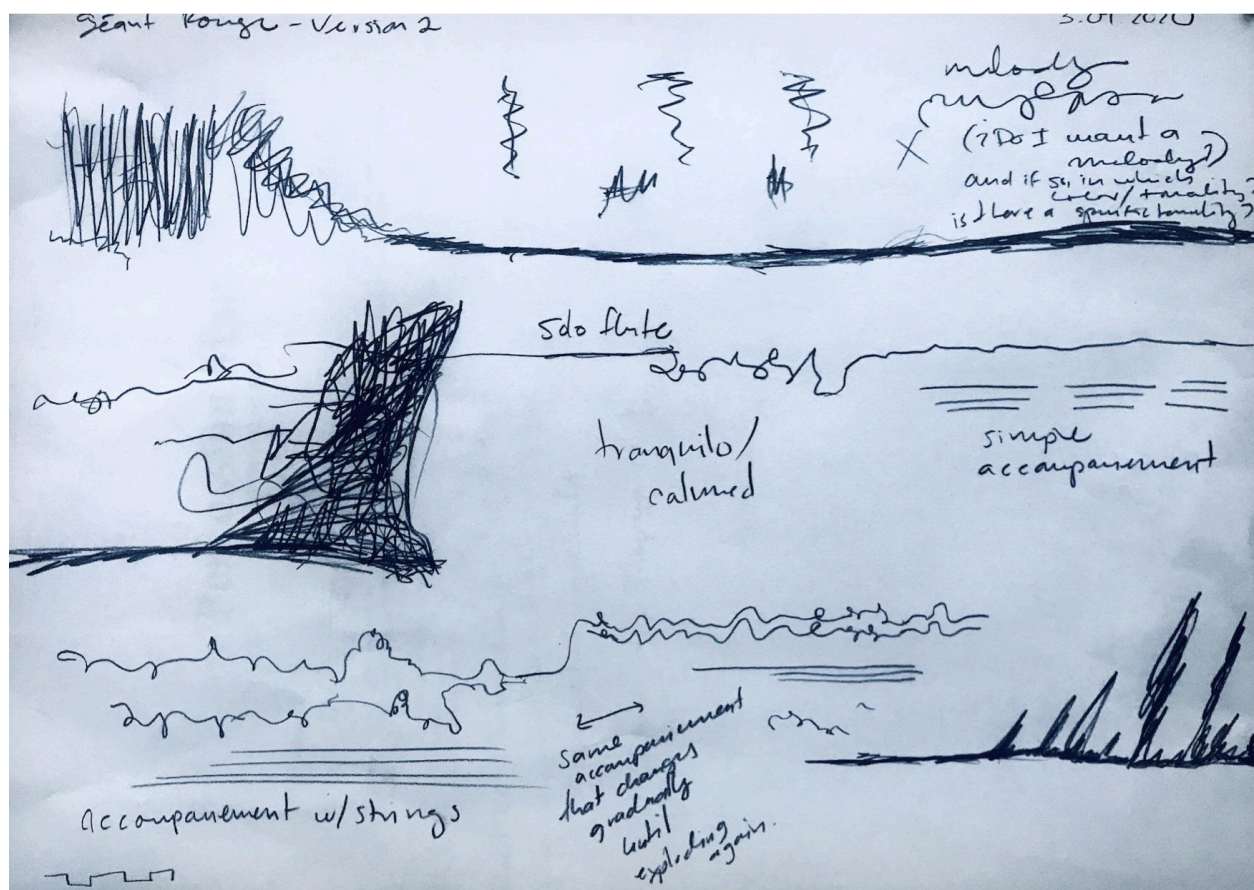 Géant Rouge - Version 2
3.01 2020
melody
(¿Do I want a
melody?)
and if so, in which
color/tonality?
is I have a specific tonality?
Solo flute
tranquilo/
calmed
simple
accompanement
same
accompaniement
that changes
gradually
until
exploding
again.
accompanement w/strings